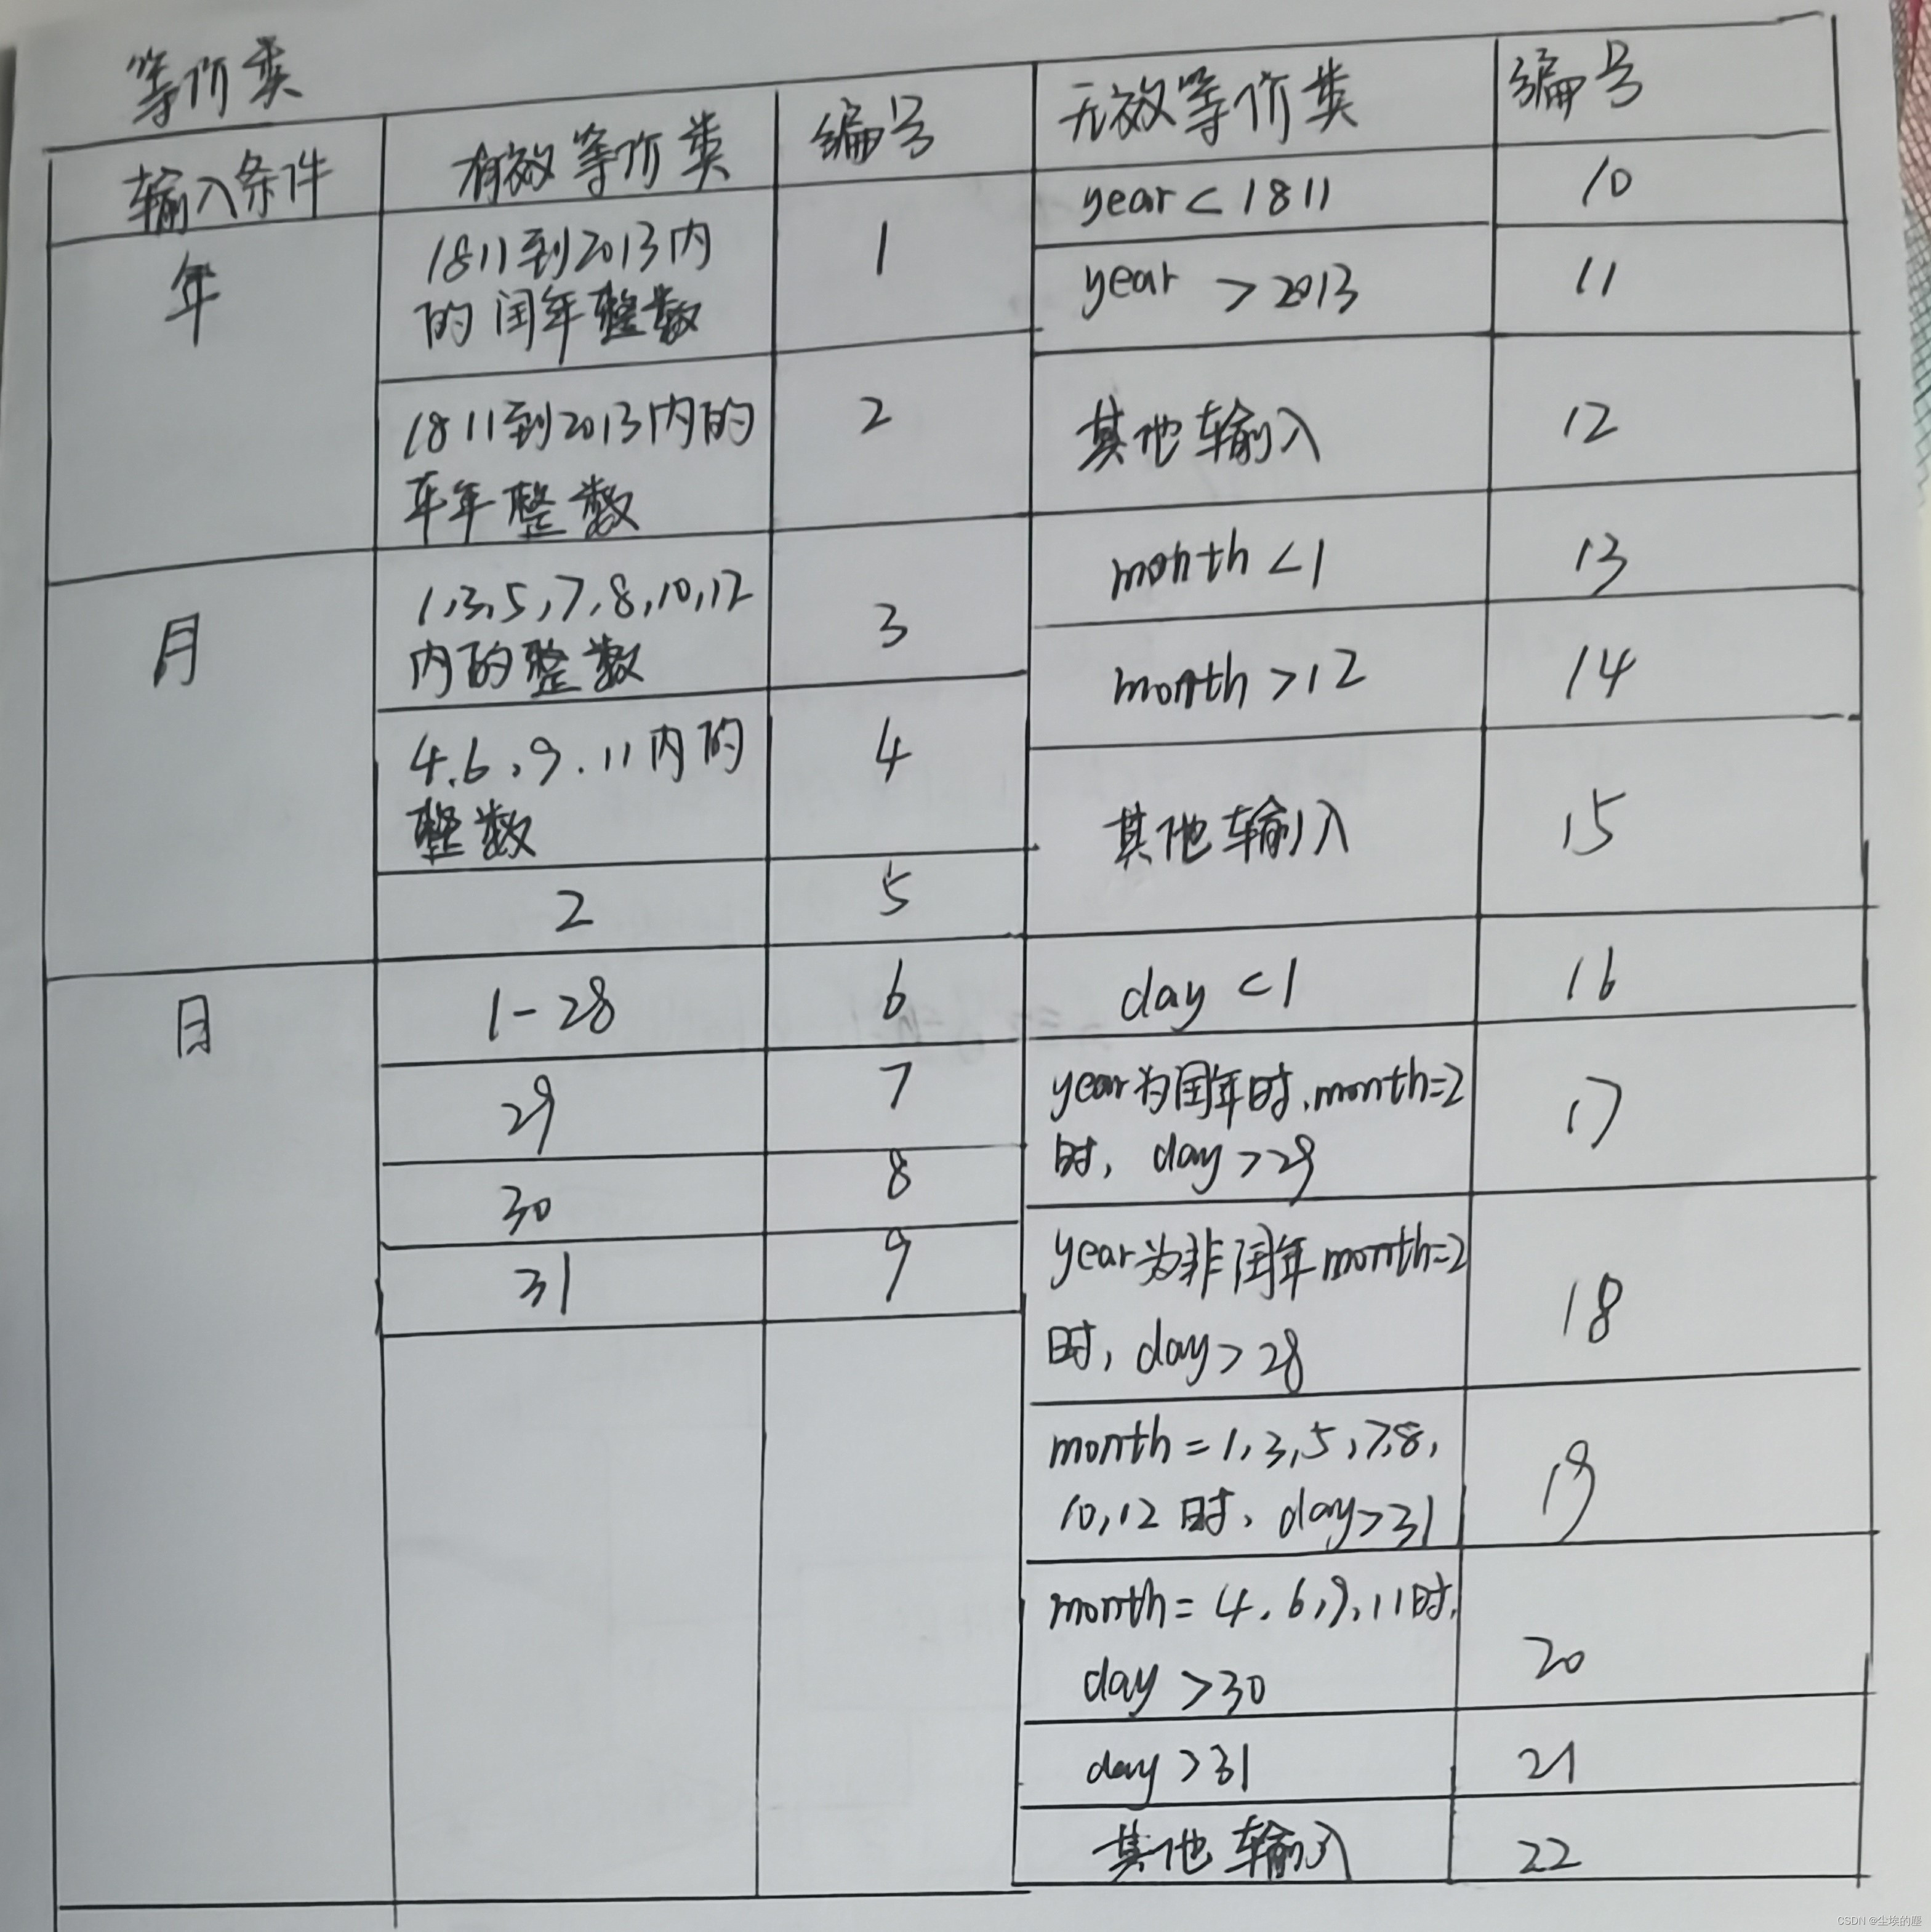 等价类
输入条件
有效等价类
编号
无效等价类
编号
年
1811到2013内
的闰年整数
1
year < 1811
10
year > 2013
11
1811到2013内的
平年整数
2
其他输入
12
月
1,3,5,7,8,10,12
内的整数
3
month <1
13
month >12
14
4,6,9.11内的
整数
4
其他输入
15
2
5
日
1-28
6
day <1
16
29
7
year为闰年时,month=2
时, day >29
17
30
8
31
9
year为非闰年month=2
时, day > 28
18
month = 1,3,5,7,8,
10,12时, day>31
19
month = 4,6,9,11时,
day >30
20
day >31
21
其他输入
22
CSDN @尘埃的塵